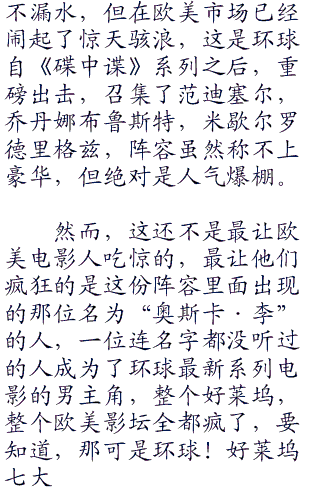 不漏水，但在欧美市场已经
闹起了惊天骇浪，这是环球
自《碟中谍》系列之后，重
磅出击，召集了范迪塞尔，
乔丹娜布鲁斯特，米歇尔罗
德里格兹，阵容虽然称不上
豪华，但绝对是人气爆棚。
然而，这还不是最让欧
美电影人吃惊的，最让他们
疯狂的是这份阵容里面出现
的那位名为“奥斯卡·李”
的人，一位连名字都没听过
的人成为了环球最新系列电
影的男主角，整个好莱坞，
整个欧美影坛全都疯了，要
知道，那可是环球！好莱坞
七大